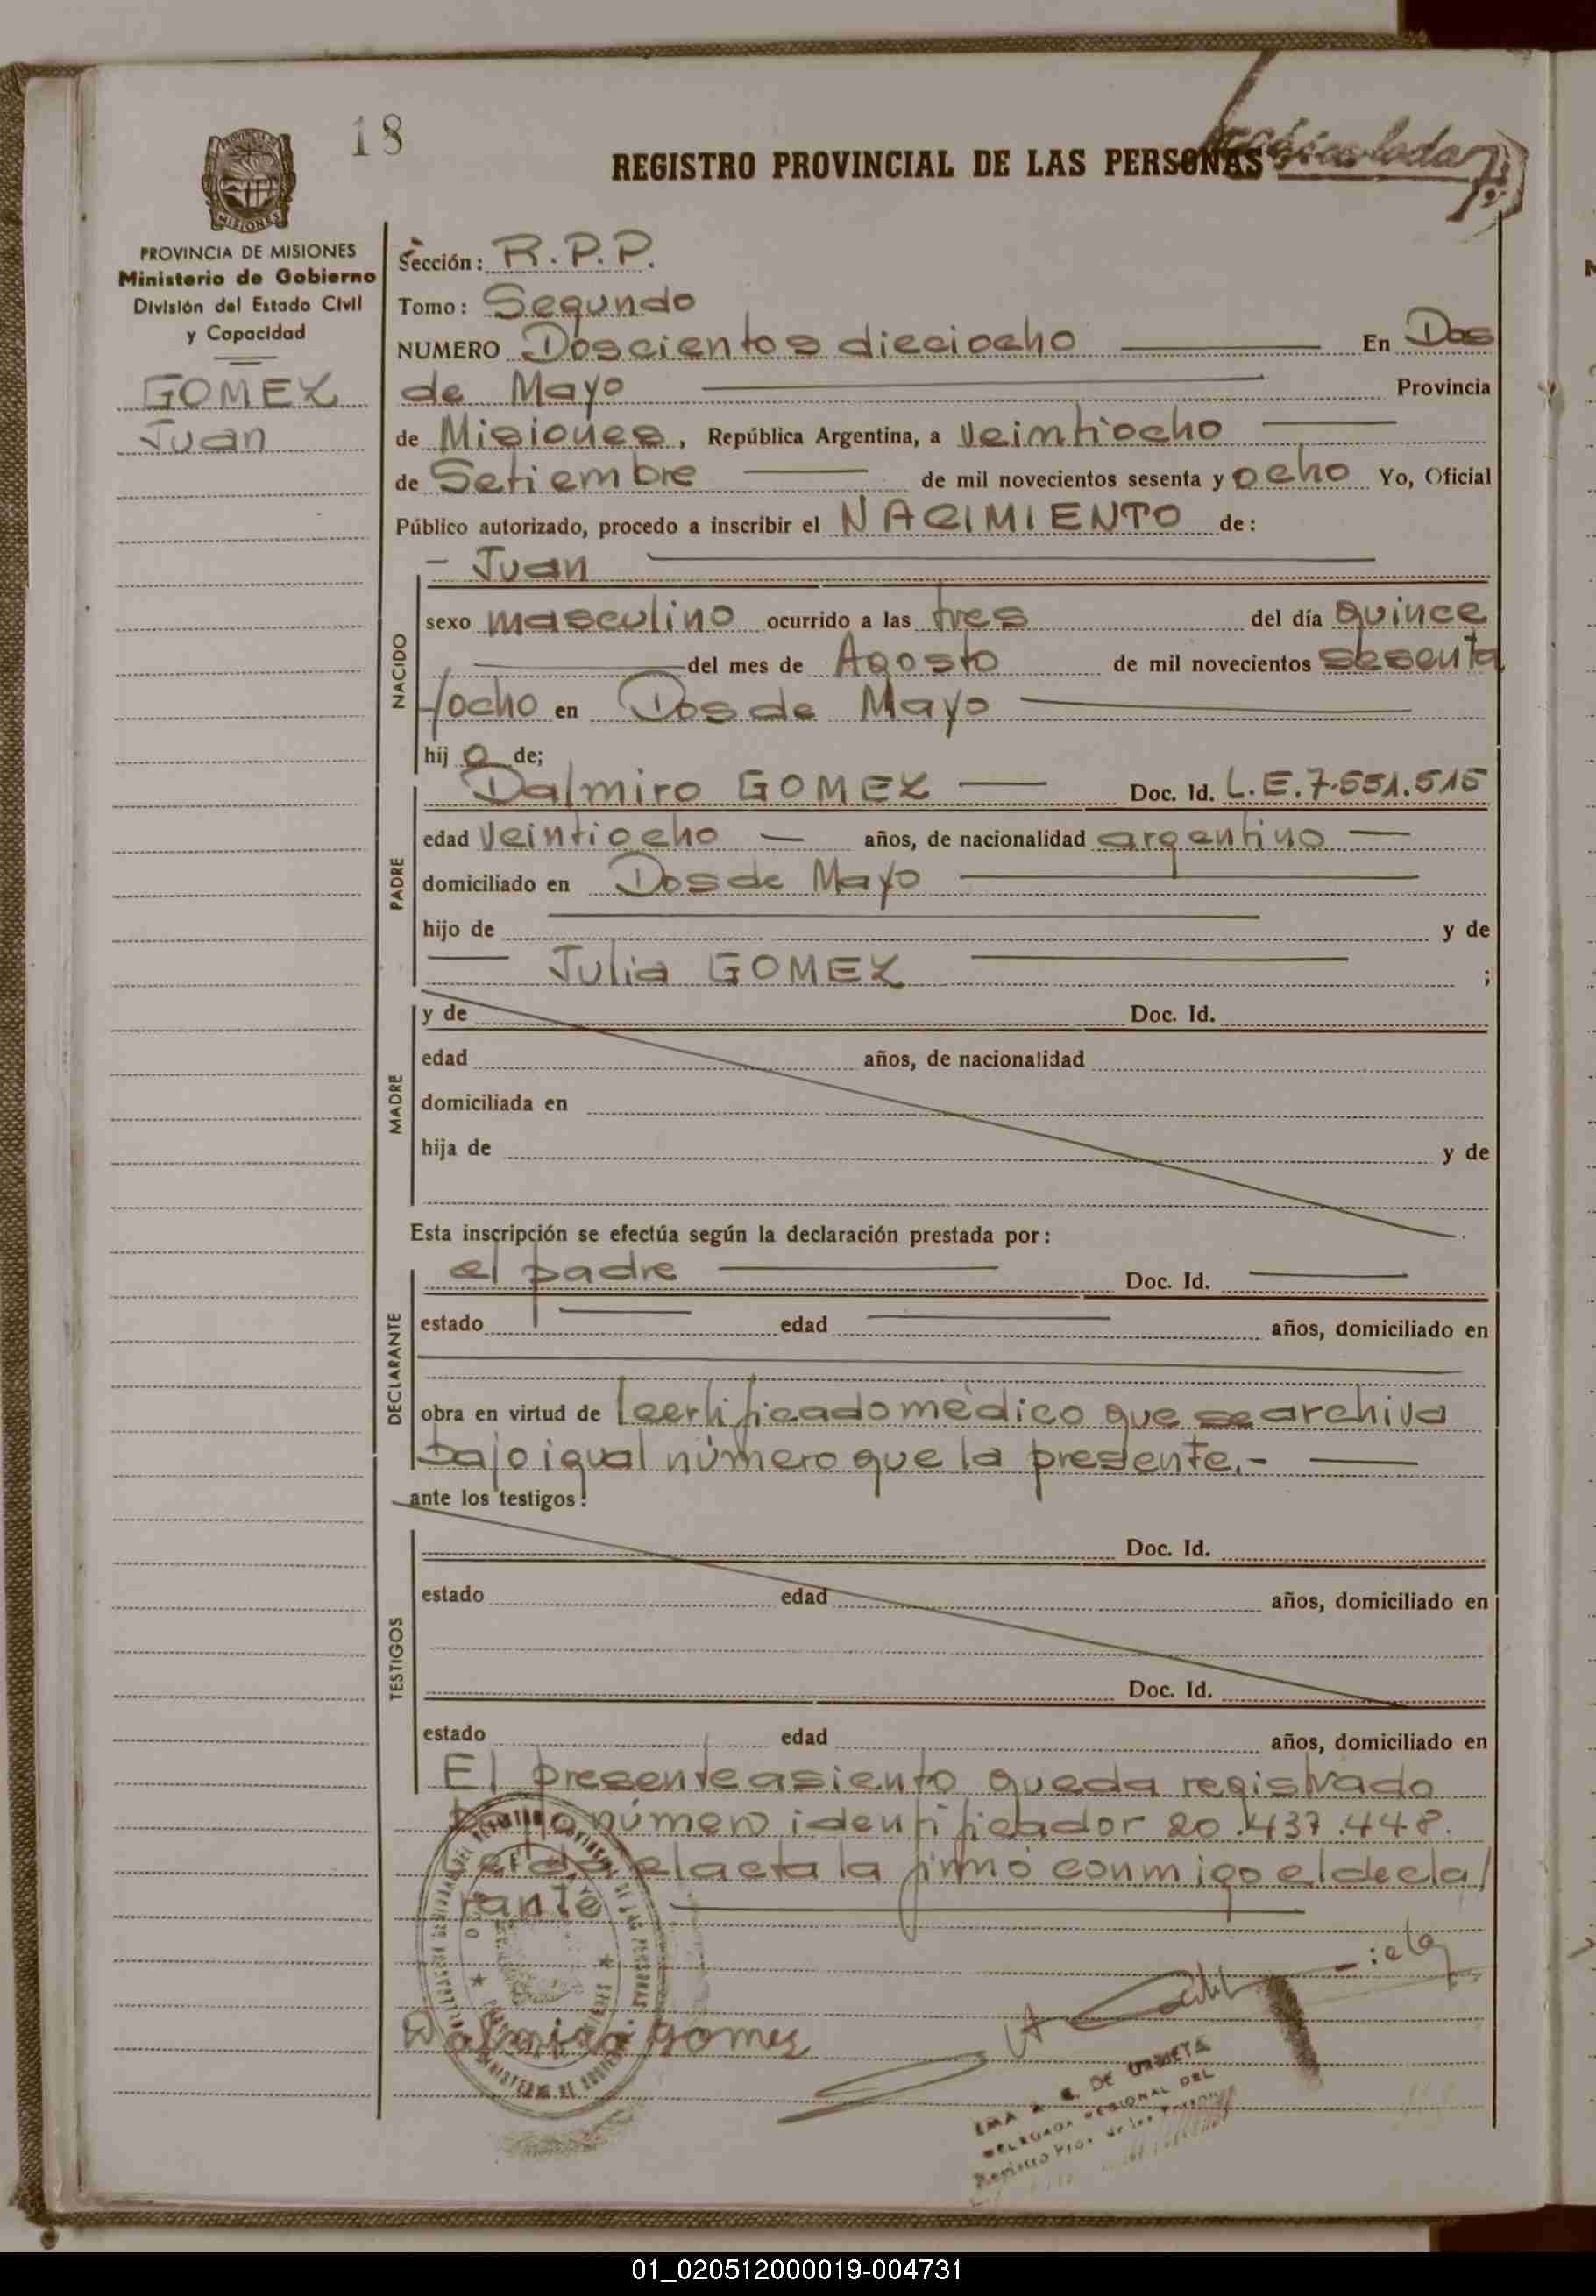 18
REGISTRO PROVINCIAL DE LAS PERSONAS
PROVINCIA DE MISIONES
Ministerio de Gobierno
División del Estado Civil
y Capacidad
GOMEZ
Juan
Sección: R.P.P.
Tomo: Segundo
NUMERO Doscientos dieciocho En Dos
de Mayo Provincia
de Misiones, República Argentina, a veintiocho
de Setiembre de mil novecientos sesenta y ocho Yo, Oficial
Público autorizado, procedo a inscribir el NACIMIENTO de:
- Juan
NACIDO
sexo masculino ocurrido a las tres del día quince
del mes de Agosto de mil novecientos sesenta
y ocho en Dos de Mayo
hij o de;
PADRE
Dalmiro GOMEZ Doc. Id. L.E.7.551.515
edad veintiocho años, de nacionalidad argentino
domiciliado en Dos de Mayo
hijo de y de
Julia GOMEZ ;
MADRE
y de Doc. Id.
edad años, de nacionalidad
domiciliada en
hija de y de
Esta inscripción se efectúa según la declaración prestada por:
DECLARANTE
el padre Doc. Id.
estado edad años, domiciliado en
obra en virtud de certificado médico que se archiva
bajo igual número que la presente.-
ante los testigos:
TESTIGOS
Doc. Id.
estado edad años, domiciliado en
Doc. Id.
estado edad años, domiciliado en
El presente asiento queda registrado
bajo número identificador 20.437.448.
Leída el acta la firmó conmigo el decla/
rante
Dalmiro gomez
DE URRIETA
DELEGADA REGIONAL DEL
Registro Prov. de las Personas
01_020512000019-004731